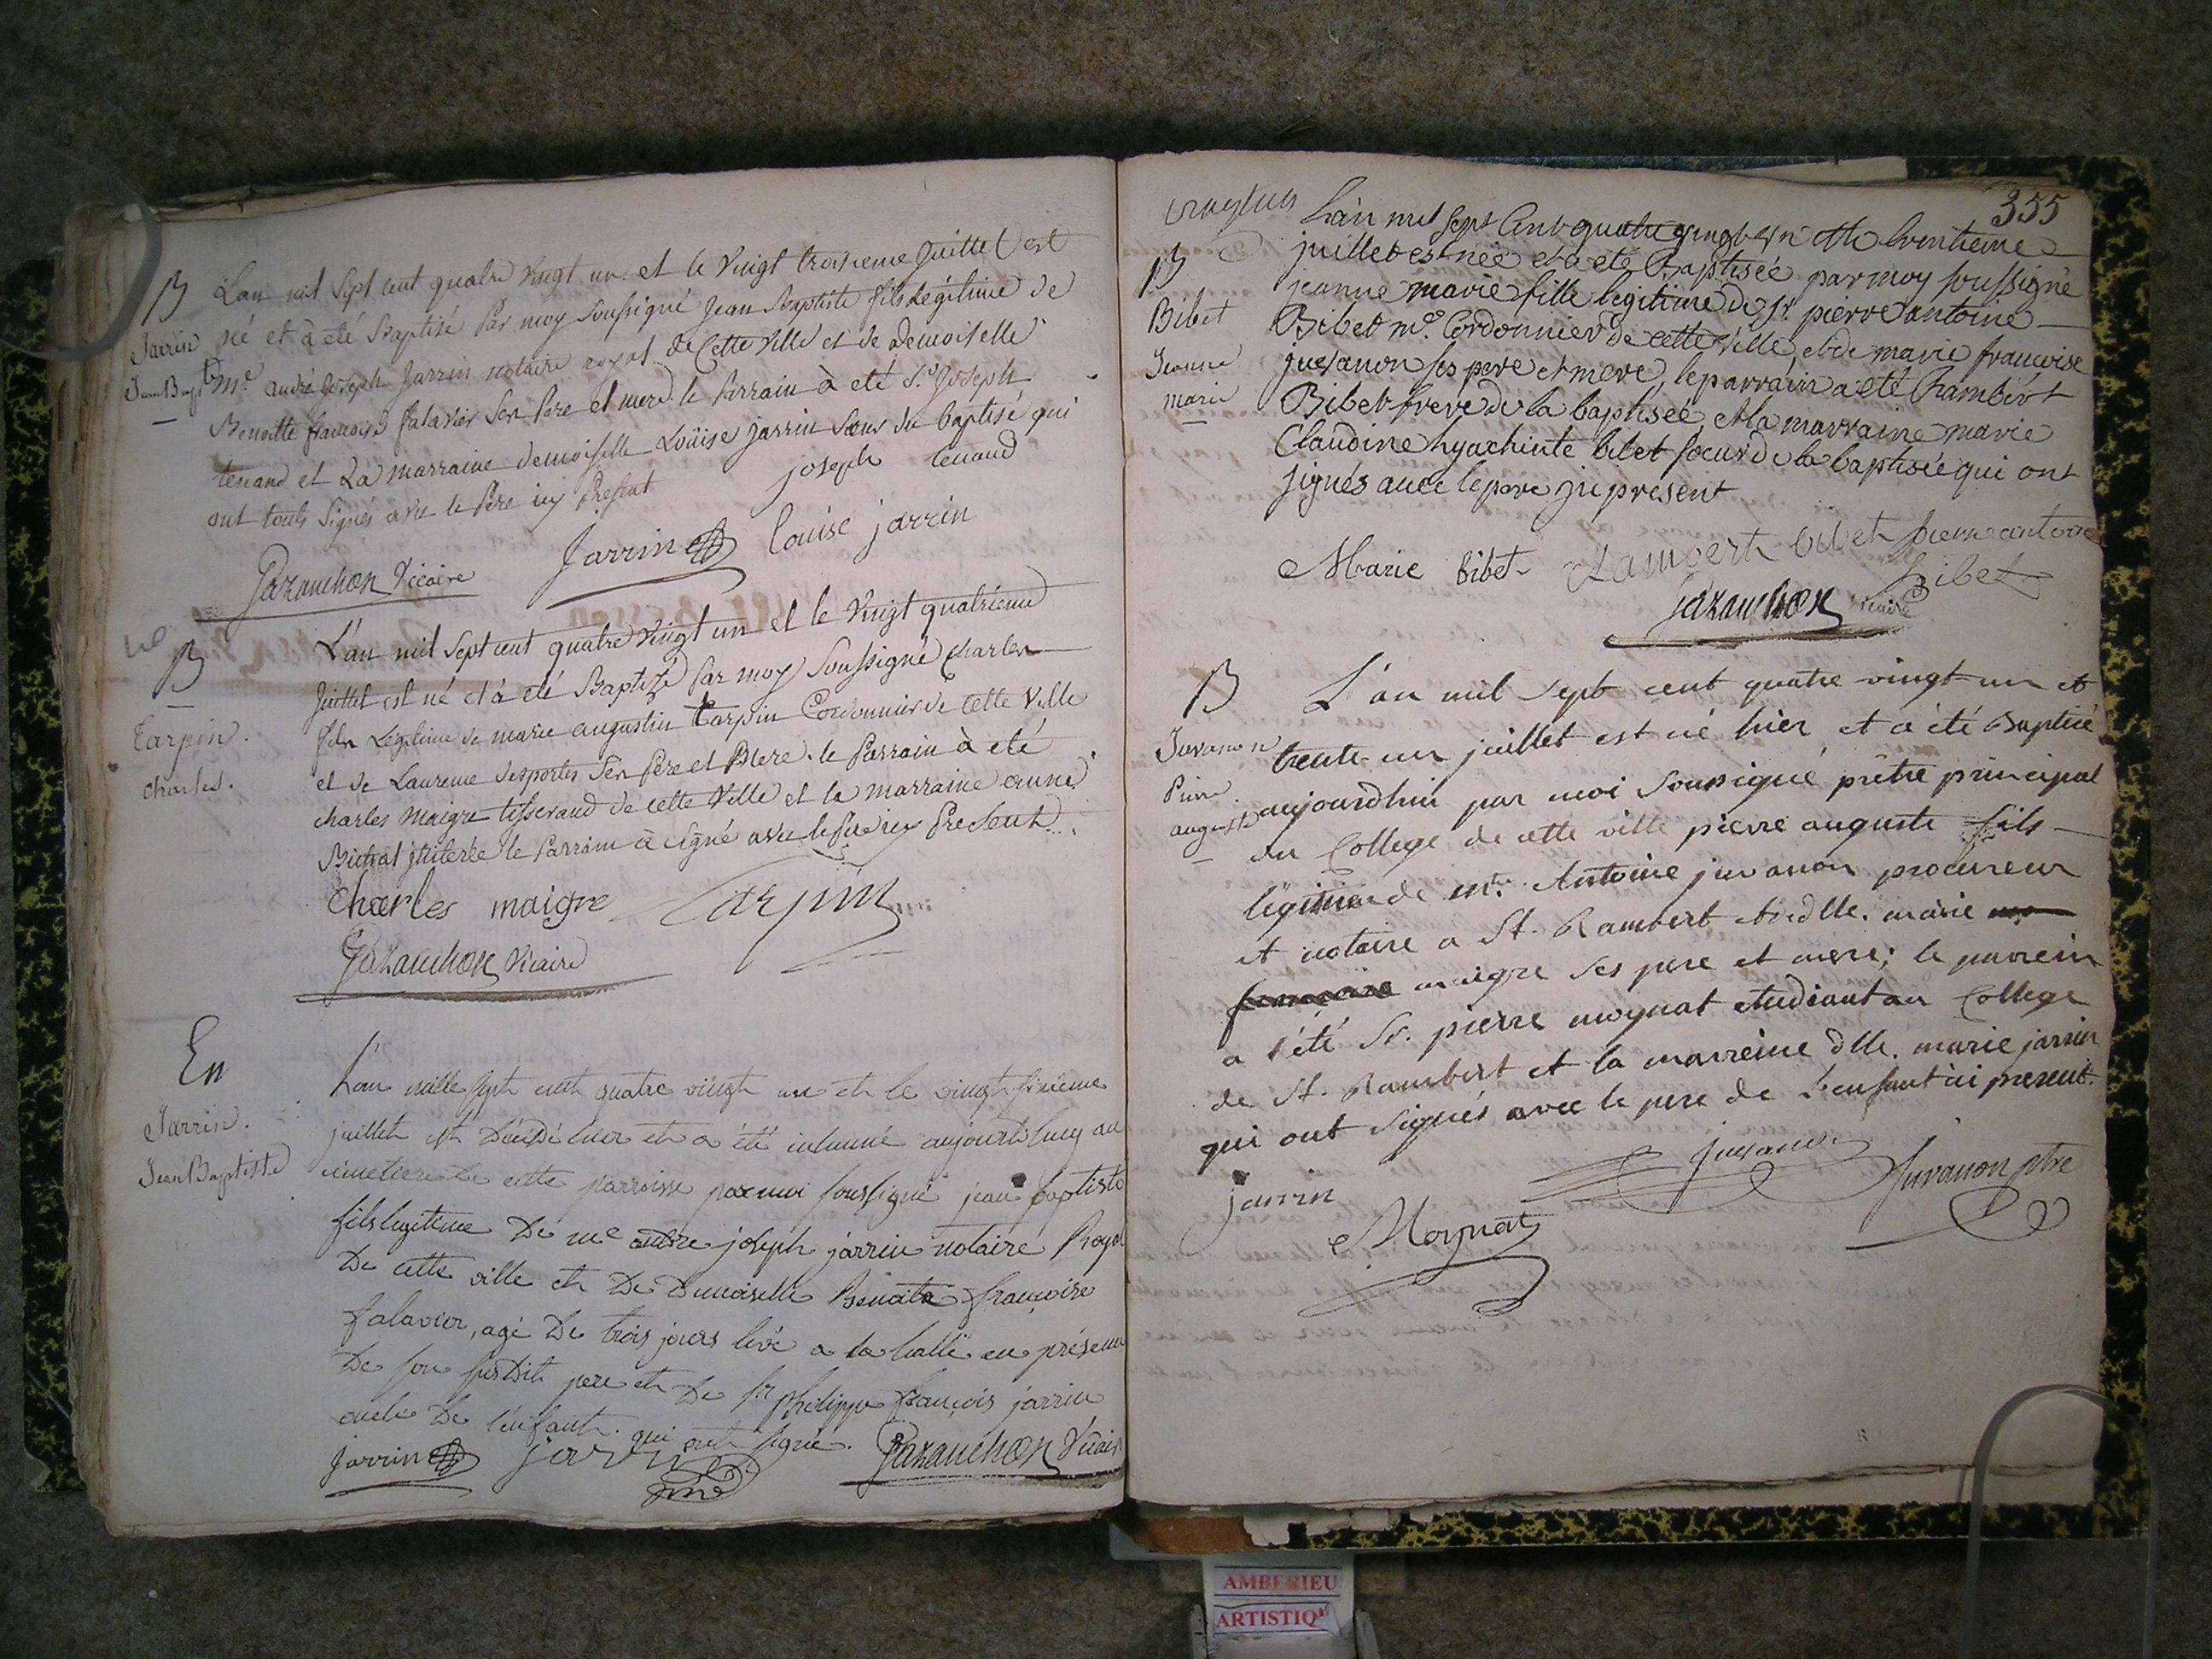 B
Jarrin
Jean Bapt
L'an mil sept cent quatre vingt un et le vingt troisieme Juillet est
né et à eté Baptisé Par moy Soussigné Jean Baptiste fils Légitime de
Me andré Joseph Jarrin notaire royal de Cette Ville et de Demoiselle
Benoitte francoise falavier Ses Pere et mere le Parrain à eté Sr Joseph
tenand et La marraine demoiselle Loüise Jarrin Sœur du baptisé qui
ont touts Signés avec le Pere icy Present
joseph tenand
Jarrin louise jarrin
Gazanchon Vicaire
B
Tarpin.
charles.
L'an mil sept cent quatre vingt un et le vingt quatrieme
Juillet est né et à eté Baptizé Par moy Soussigné Charles
fils Légitime de marie augustin tarpin Cordonnier de Cette Ville
et de Laurence desportes Ses Pere et Mere. le Parrain à eté
charles Maigre tisserand de cette Ville et la marraine
Michal illiterée le Parrain à signé avec le Pere icy Present
charles maigre Tarpin
Gazanchon Vicaire
En
Jarrin.
Jean Baptiste
L'an mille sept cent quatre vingt un et le vingt sixieme
juillet est décédé hier et a été inhumé aujourd'huy au
cimetiere de cette parroisse par moi soussigné jean baptiste
fils legitime De me andre joseph jarrin notaire Royal
De cette ville et De Demoiselle Benoite françoise
falavier, agé De trois jours levé a la halle en présence
De son susdit pere et De sr philippe françois jarrin
oncle De l'enfant. qui ont signé.
Jarrin jarrin Gazanchon Vicaire
355
L'an mil sept Cent quatre vingt un et le trentieme
B
Bibet
Jeanne
marie
juillet est née et a eté Baptisée par moy soussigné
jeanne marie fille legitime de sr. pierre antoine
Bibet me Cordonnier de cette ville, et de marie francoise
juvanon ses pere et mere, le parrain a eté Rambert
Bibet frere de la baptisée, et la marraine marie
Claudine hyachinte bibet soeur de la baptisée qui ont
signés avec le pere ji present
Marie bibet Rambert bibet pierre antoine
bibet
Gazanchon vicaire
B
Juvanon
Pierre
auguste
L'an mil sept cent quatre vingt un et
trente un juillet est né hier et a été Baptisé
aujourdhui par moi soussigné prêtre principal
du College de cette ville pierre auguste fils
légitime de me. Antoine juvanon procureur
et notaire a St. Rambert et de dlle. marie
maigre ses pere et mere; le parrein
a été Sr. pierre moynat etudiant au College
de St. Rambert et la marreine dlle. marie jarrin
qui ont signés avec le pere de l'enfant ici present.
jarrin juvanon Juvanon ptre
Moynat
AMBERIEU
ARTISTIQ